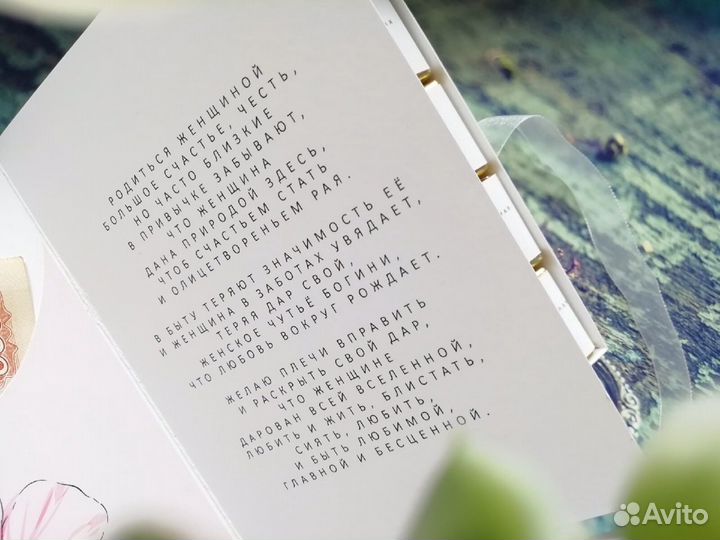 РОДИТЬСЯ ЖЕНЩИНОЙ
БОЛЬШОЕ СЧАСТЬЕ, ЧЕСТЬ,
НО ЧАСТО БЛИЗКИЕ
В ПРИВЫЧКЕ ЗАБЫВАЮТ,
ЧТО ЖЕНЩИНА
ДАНА ПРИРОДОЙ ЗДЕСЬ,
ЧТОБ СЧАСТЬЕМ СТАТЬ
И ОЛИЦЕТВОРЕНЬЕМ РАЯ.
В БЫТУ ТЕРЯЮТ ЗНАЧИМОСТЬ ЕЁ
И ЖЕНЩИНА В ЗАБОТАХ УВЯДАЕТ,
ТЕРЯЯ ДАР СВОЙ,
ЖЕНСКОЕ ЧУТЬЁ БОГИНИ,
ЧТО ЛЮБОВЬ ВОКРУГ РОЖДАЕТ.
ЖЕЛАЮ ПЛЕЧИ ВПРАВИТЬ
И РАСКРЫТЬ СВОЙ ДАР,
ЧТО ЖЕНЩИНЕ
ДАРОВАН ВСЕЙ ВСЕЛЕННОЙ,
ЛЮБИТЬ И ЖИТЬ, БЛИСТАТЬ,
СИЯТЬ, ЛЮБИТЬ,
И БЫТЬ ЛЮБИМОЙ,
ГЛАВНОЙ И БЕСЦЕННОЙ.
Avito